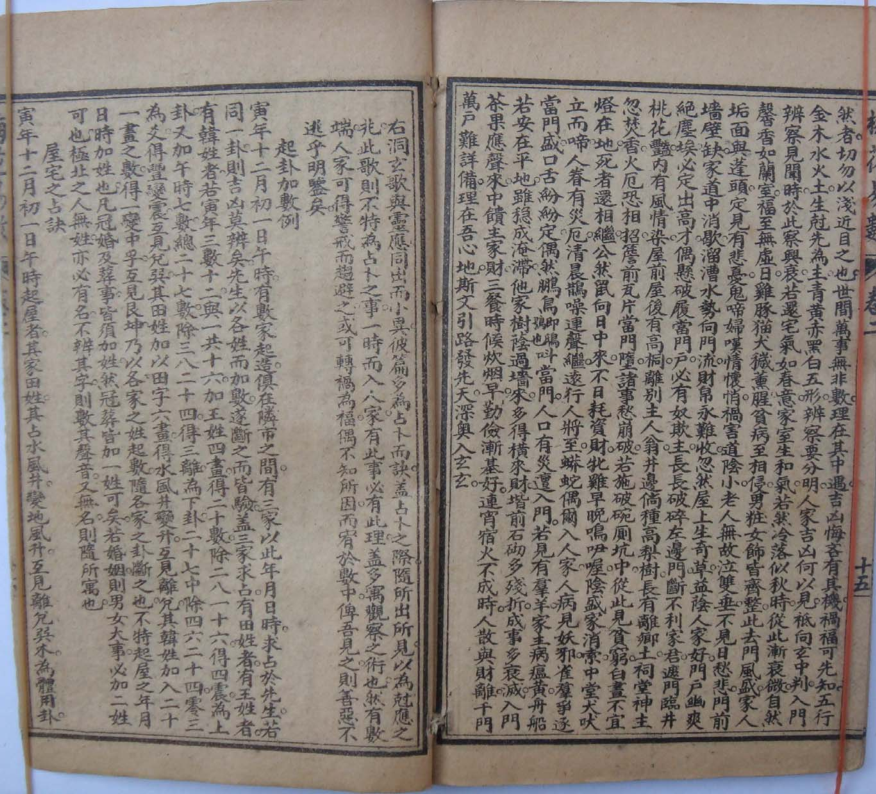 然者切勿以淺近目之也世間萬事無非數理在其中遇吉凶悔吝有其機禍福可先知五行
金木水火土生尅先為主青黃赤黑白五形辨察要分明人家吉凶何以見祗向玄中判入門
辨察見聞時於此察興衰若還宅氣如春意家室生和氣若然冷落似秋時從此漸衰微自然
馨香如蘭室福至無虛日雞豚猫犬穢薰腥貧病至相侵男粧女飾皆齊整此去門風盛家人
垢面與蓬頭定見有悲憂鬼啼婦嘆情懷悄禍害道陰小老人無故泣雙垂不日愁悲門前
墻壁缺家道中消歇溜漕水勢向門流財帛永難收忽然屋上生奇草益陰人家好門戶幽爽
絕塵埃必定出高才偶懸破履當門戶必有奴欺主長長破碎左邊門斷不利家君遮門臨井
桃花艷內有風情染屋前屋後有高桐離別主人翁井邊倘種高梨樹長有離鄉土祠堂神主
忽焚香火厄恐相招簷前瓦片當門墮諸事愁崩破若施破碗厠坑中從此見貧窮白晝不宜
燈在地死者還相繼公然鼠向日中來不日耗資財牝雞早晚鳴咿喔陰盛家消索中堂犬吠
立而啼人眷有災厄清晨鵲噪連聲繼遠行人將至蟒蛇偶爾入人家人病見妖邪雀羣爭逐
當門盛口舌紛紛定偶然鵬鳥叫當門人口有災遭入門若見有羣羊家主病瘟黃舟船
若安在平地雖穩成淹滯他家樹陰過墻來多得橫來財堦前石砌多殘折成事多衰滅入門
茶果應聲來中饋主家財三餐時候炊烟早勤儉漸基好連宵宿火不成時人散與財離千門
萬戶難詳備理在吾心地斯文引路發先天深奧入玄玄
右洞玄歌與靈應同出而小異彼篇多為占卜而訣蓋占卜之際隨所出所見以為尅應之
兆此歌則不特為占卜之事一時而入人家有此事必有此理蓋多寓觀察之術也然有數
端人家可得警戒而趨避之或可轉禍為福偶不知所因而宥於數中俾吾見之則善惡不
逃乎明鑒矣
起卦加數例
寅年十二月初一日午時有數家起造俱在隣市之間有三家以此年月日時求占於先生若
同一卦則吉凶莫辨矣先生以各姓而加數遂斷之而皆驗蓋三家求占有田姓者有王姓者
有韓姓者若寅年三數十二與一共十六加王姓四畫得二十數除二八一十六得四震為上
卦又加午時七數總二十七數除三八二十四得三離為下卦二十七中除四六二十四零三
為爻得豐變震互見兌巽其田姓加以田字六畫得水風井變升互見離兌其韓姓加入二十
一畫之數得一變中孚互見艮坤乃以各家之姓起數隨各家之卦斷之也不特起屋之年月
日時加姓也凡冠婚及葬事皆須加姓然冠葬皆加一姓可矣若婚姻則男女大事必加二姓
可也極北之人無姓亦必有名不辨其字則數其聲音又無名則隨所寓也
屋宅之占訣
寅年十二月初一日午時起屋者其家田姓其占水風井變地風升互見離兌巽木為體用卦
十五